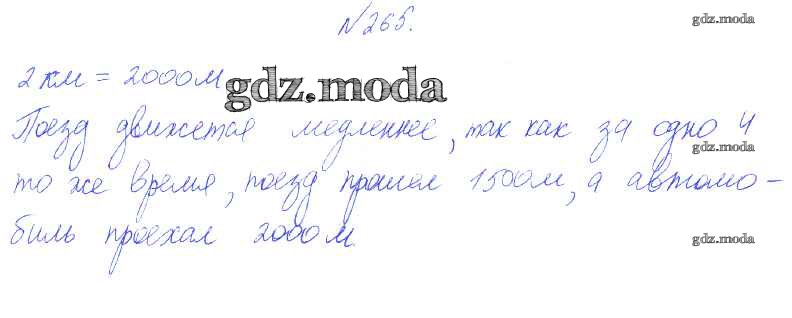 №265.
gdz.moda
2 км = 2000м
gdz.moda
Поезд движется медленнее, так как за одно и
gdz.moda
то же время, поезд прошел 1500м, а автомо-
биль проехал 2000м.
gdz.moda